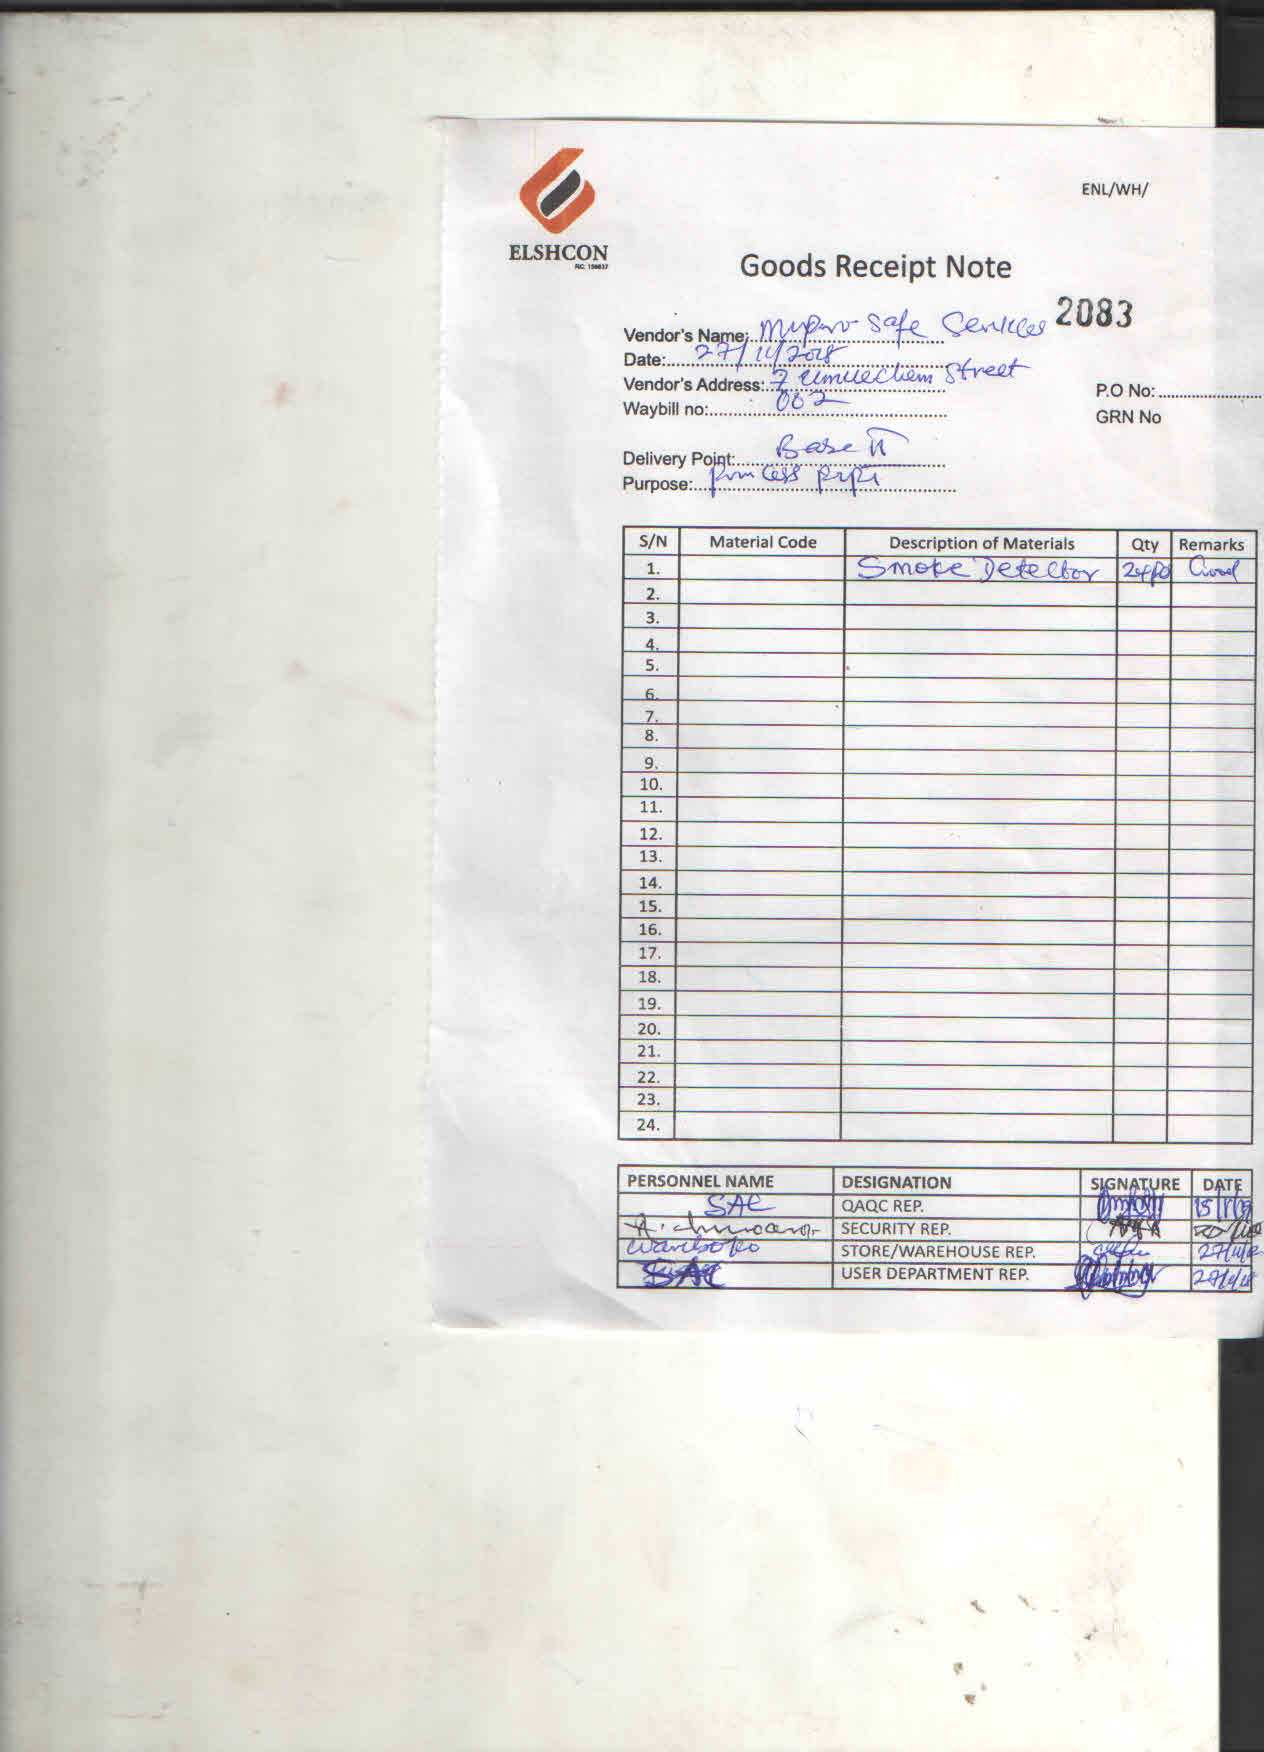 ELSHCON
RC 156637
ENL/WH/
Goods Receipt Note
2083
Vendor's Name: Safe Services
Date: 27/11/2018
Vendor's Address: 7 Umuechem Street
Waybill no: 002
P.O No:
GRN No
Delivery Point: Base II
Purpose: Princess
S/N Material Code Description of Materials Qty Remarks
1. Smoke Detector Good
2.
3.
4.
5.
6.
7.
8.
9.
10.
11.
12.
13.
14.
15.
16.
17.
18.
19.
20.
21.
22.
23.
24.
PERSONNEL NAME DESIGNATION SIGNATURE DATE
QAQC REP.
SECURITY REP.
Wariboko STORE/WAREHOUSE REP.
USER DEPARTMENT REP.